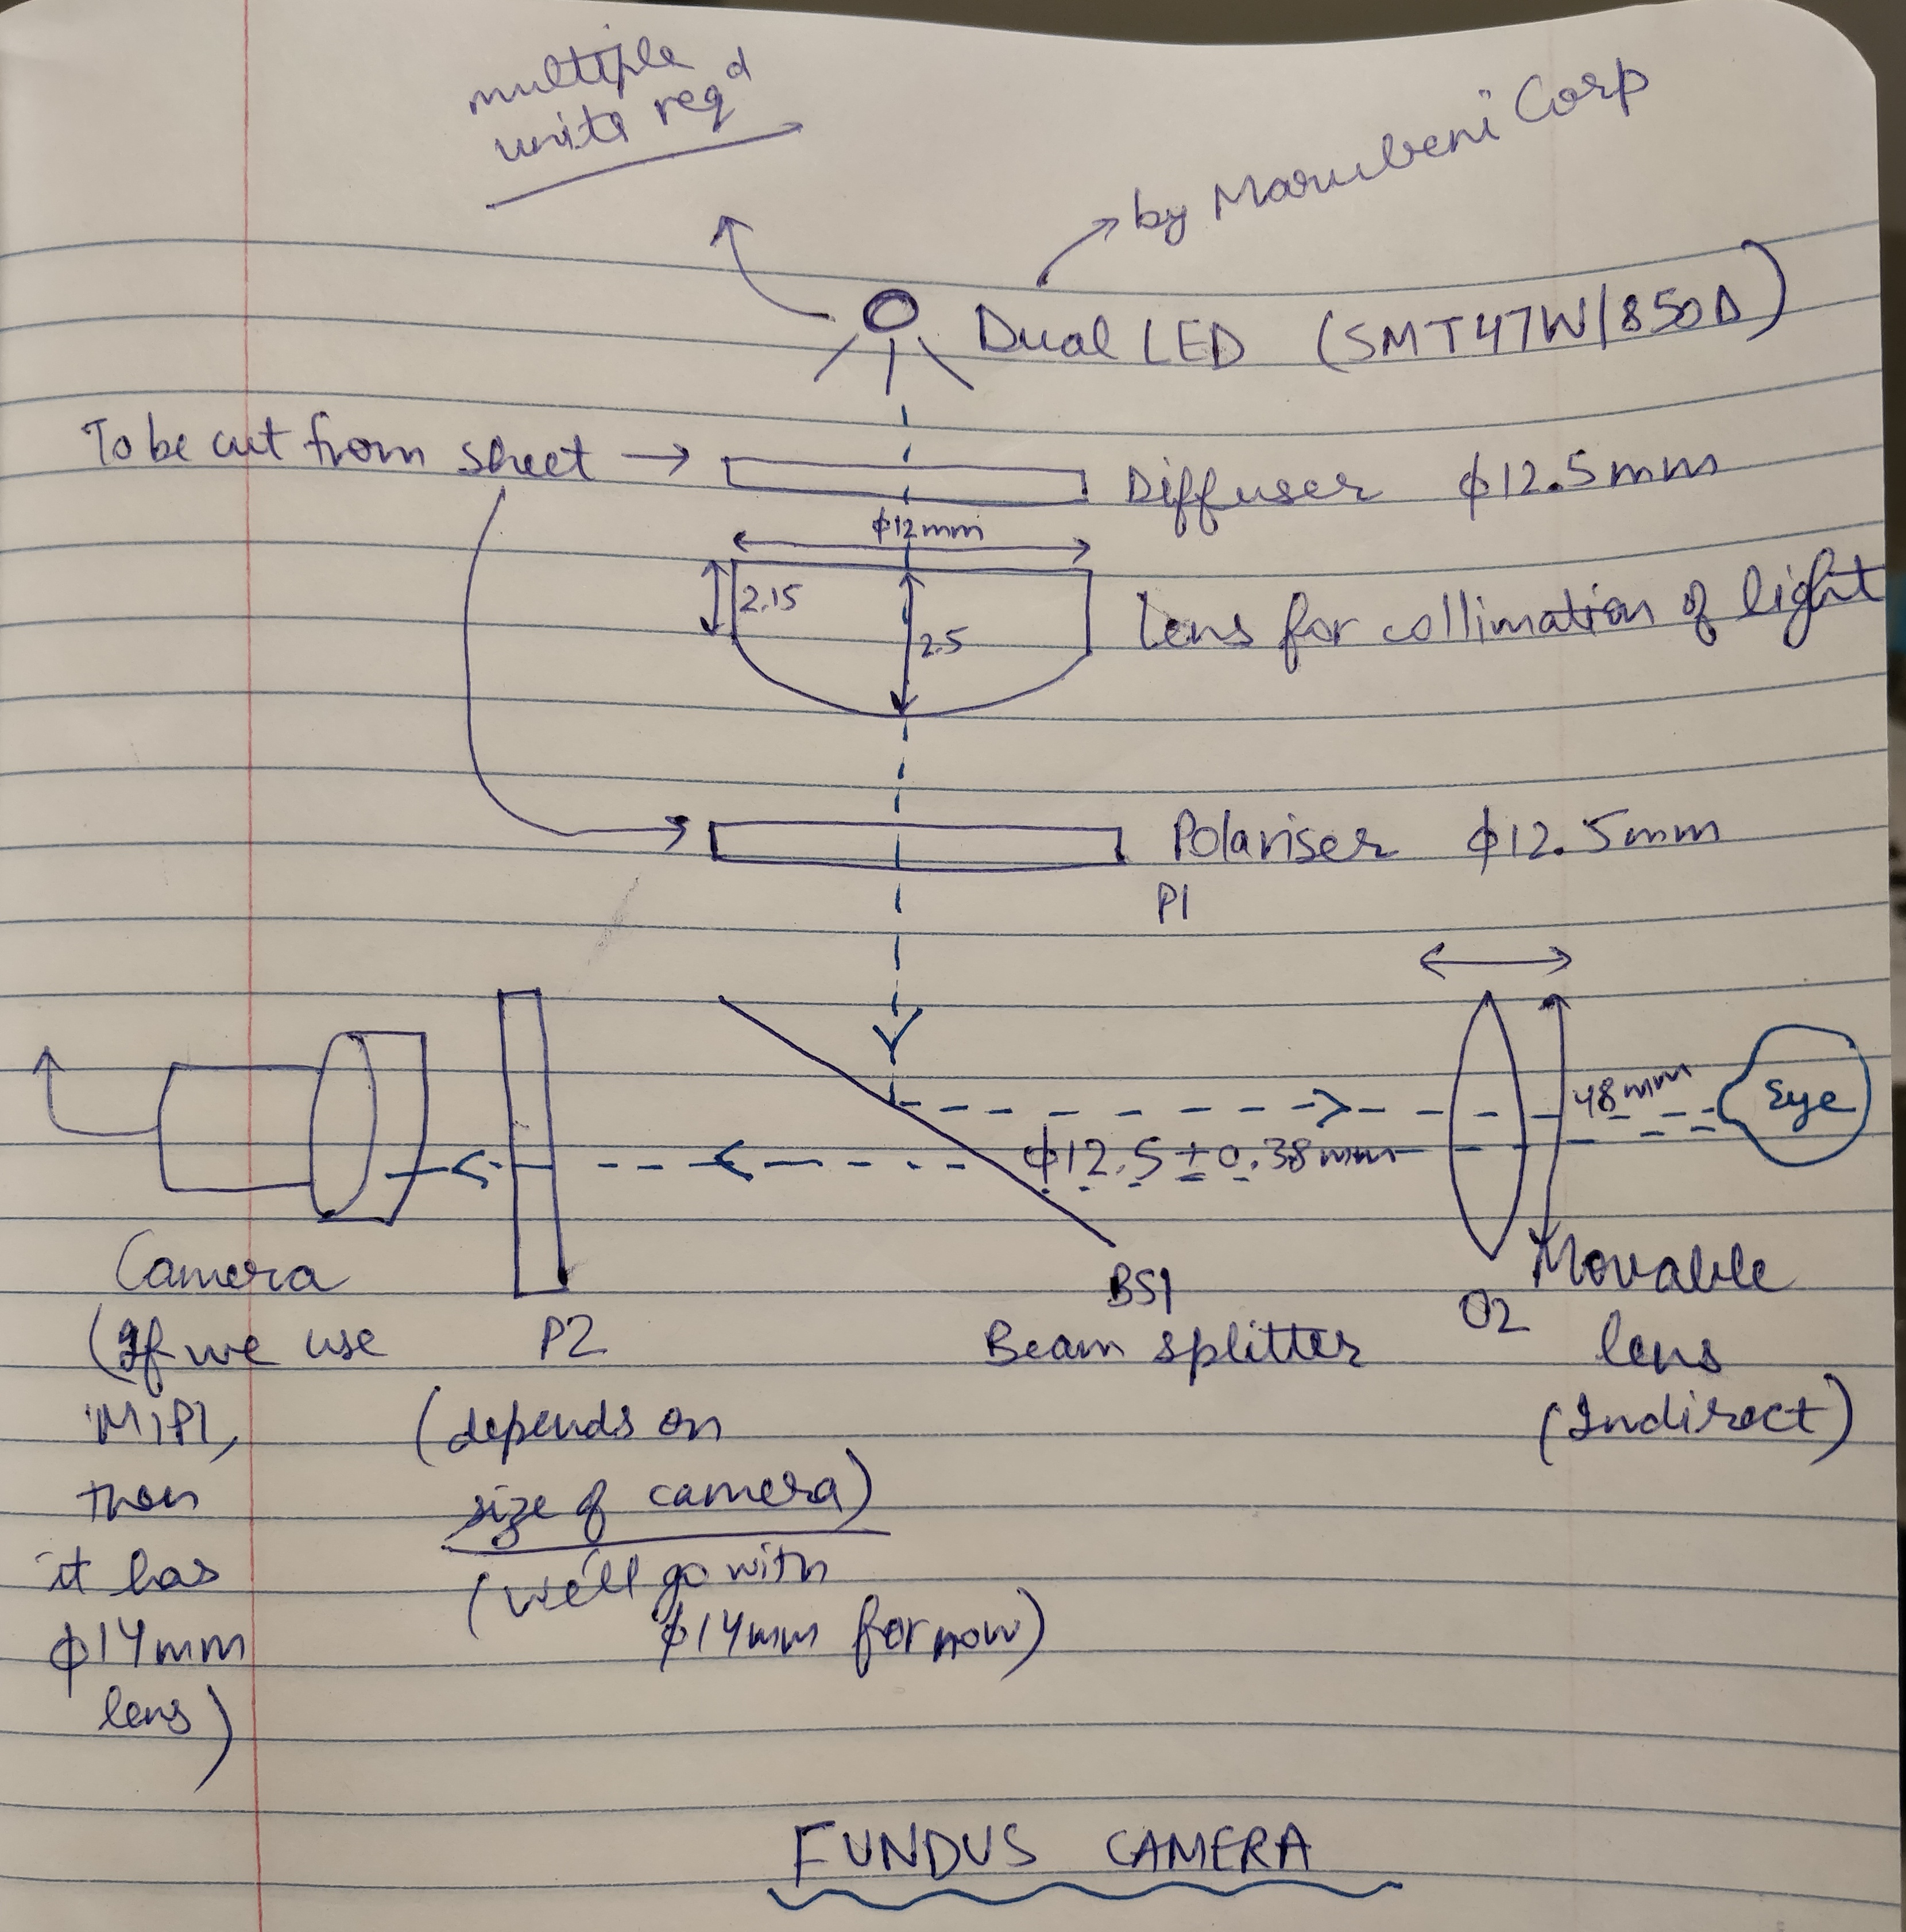 multiple
units reqd
by Marubeni Corp
Dual LED (SMT47W/850D)
To be cut from sheet → Diffuser ϕ12.5mm
ϕ12mm
2.15
2.5
Lens for collimation of light
Polariser ϕ12.5mm
P1
48mm
Eye
ϕ12.5±0.38mm
Camera
(If we use
MIPI,
then
it has
ϕ14mm
lens)
P2
(depends on
size of camera)
(we'll go with
ϕ14mm for now)
BS1
Beam splitter
O2
Movable
lens
(Indirect)
FUNDUS CAMERA